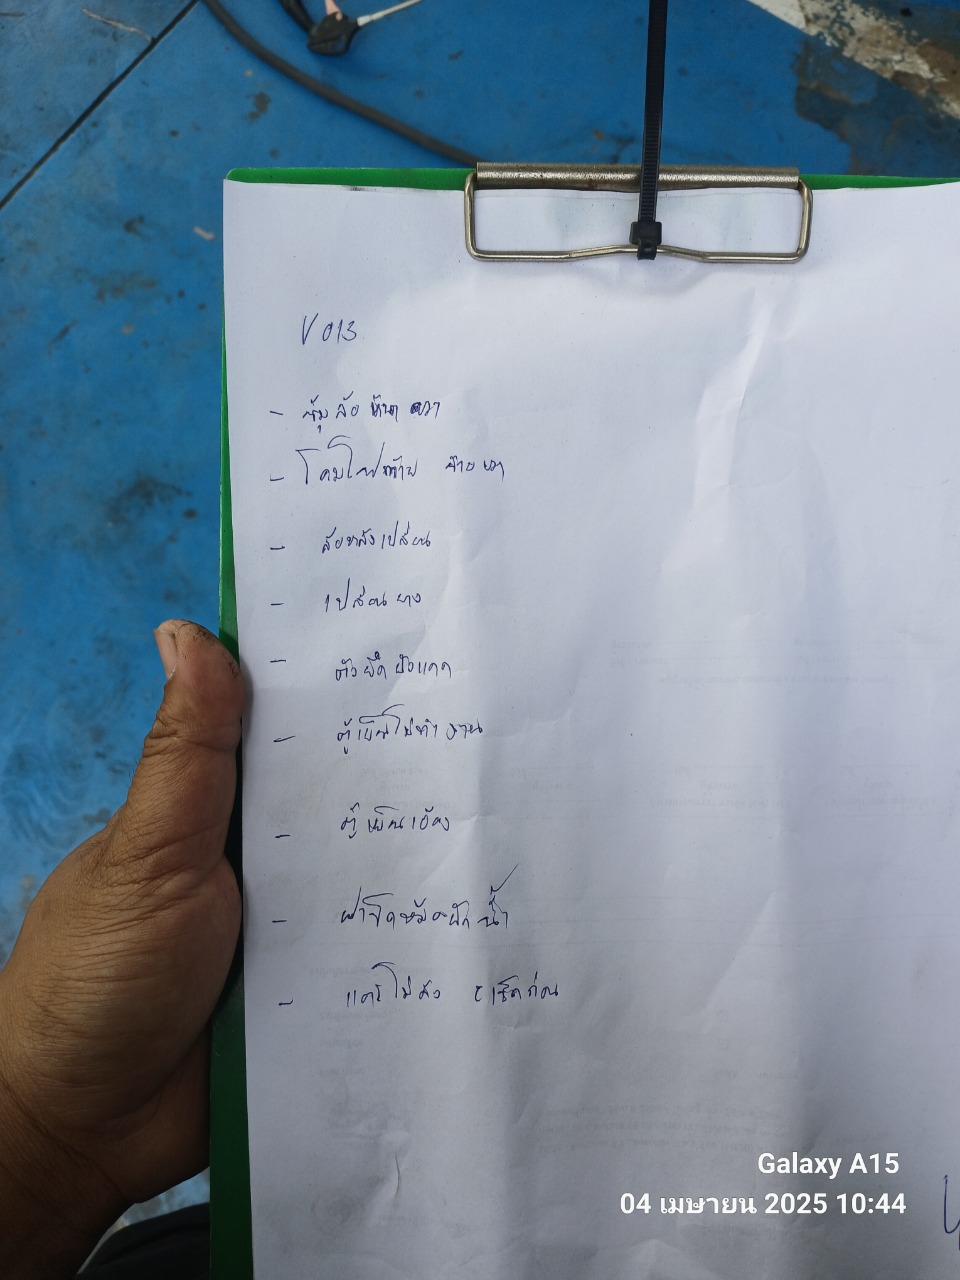 V 013
- ซุ้มล้อ หน้า ขวา
- โคมไฟท้าย ซ้าย ขวา
- ล้อหลังเปลี่ยน
- เปลี่ยน ยาง
- ตัวยึด บังแดด
- ตู้เย็นไม่ทำงาน
- ตู้เย็นเอียง
- ฝาปิดหม้อพักน้ำ
- แตรไม่ดัง เช็คก่อน
Galaxy A15
04 เมษายน 2025 10:44